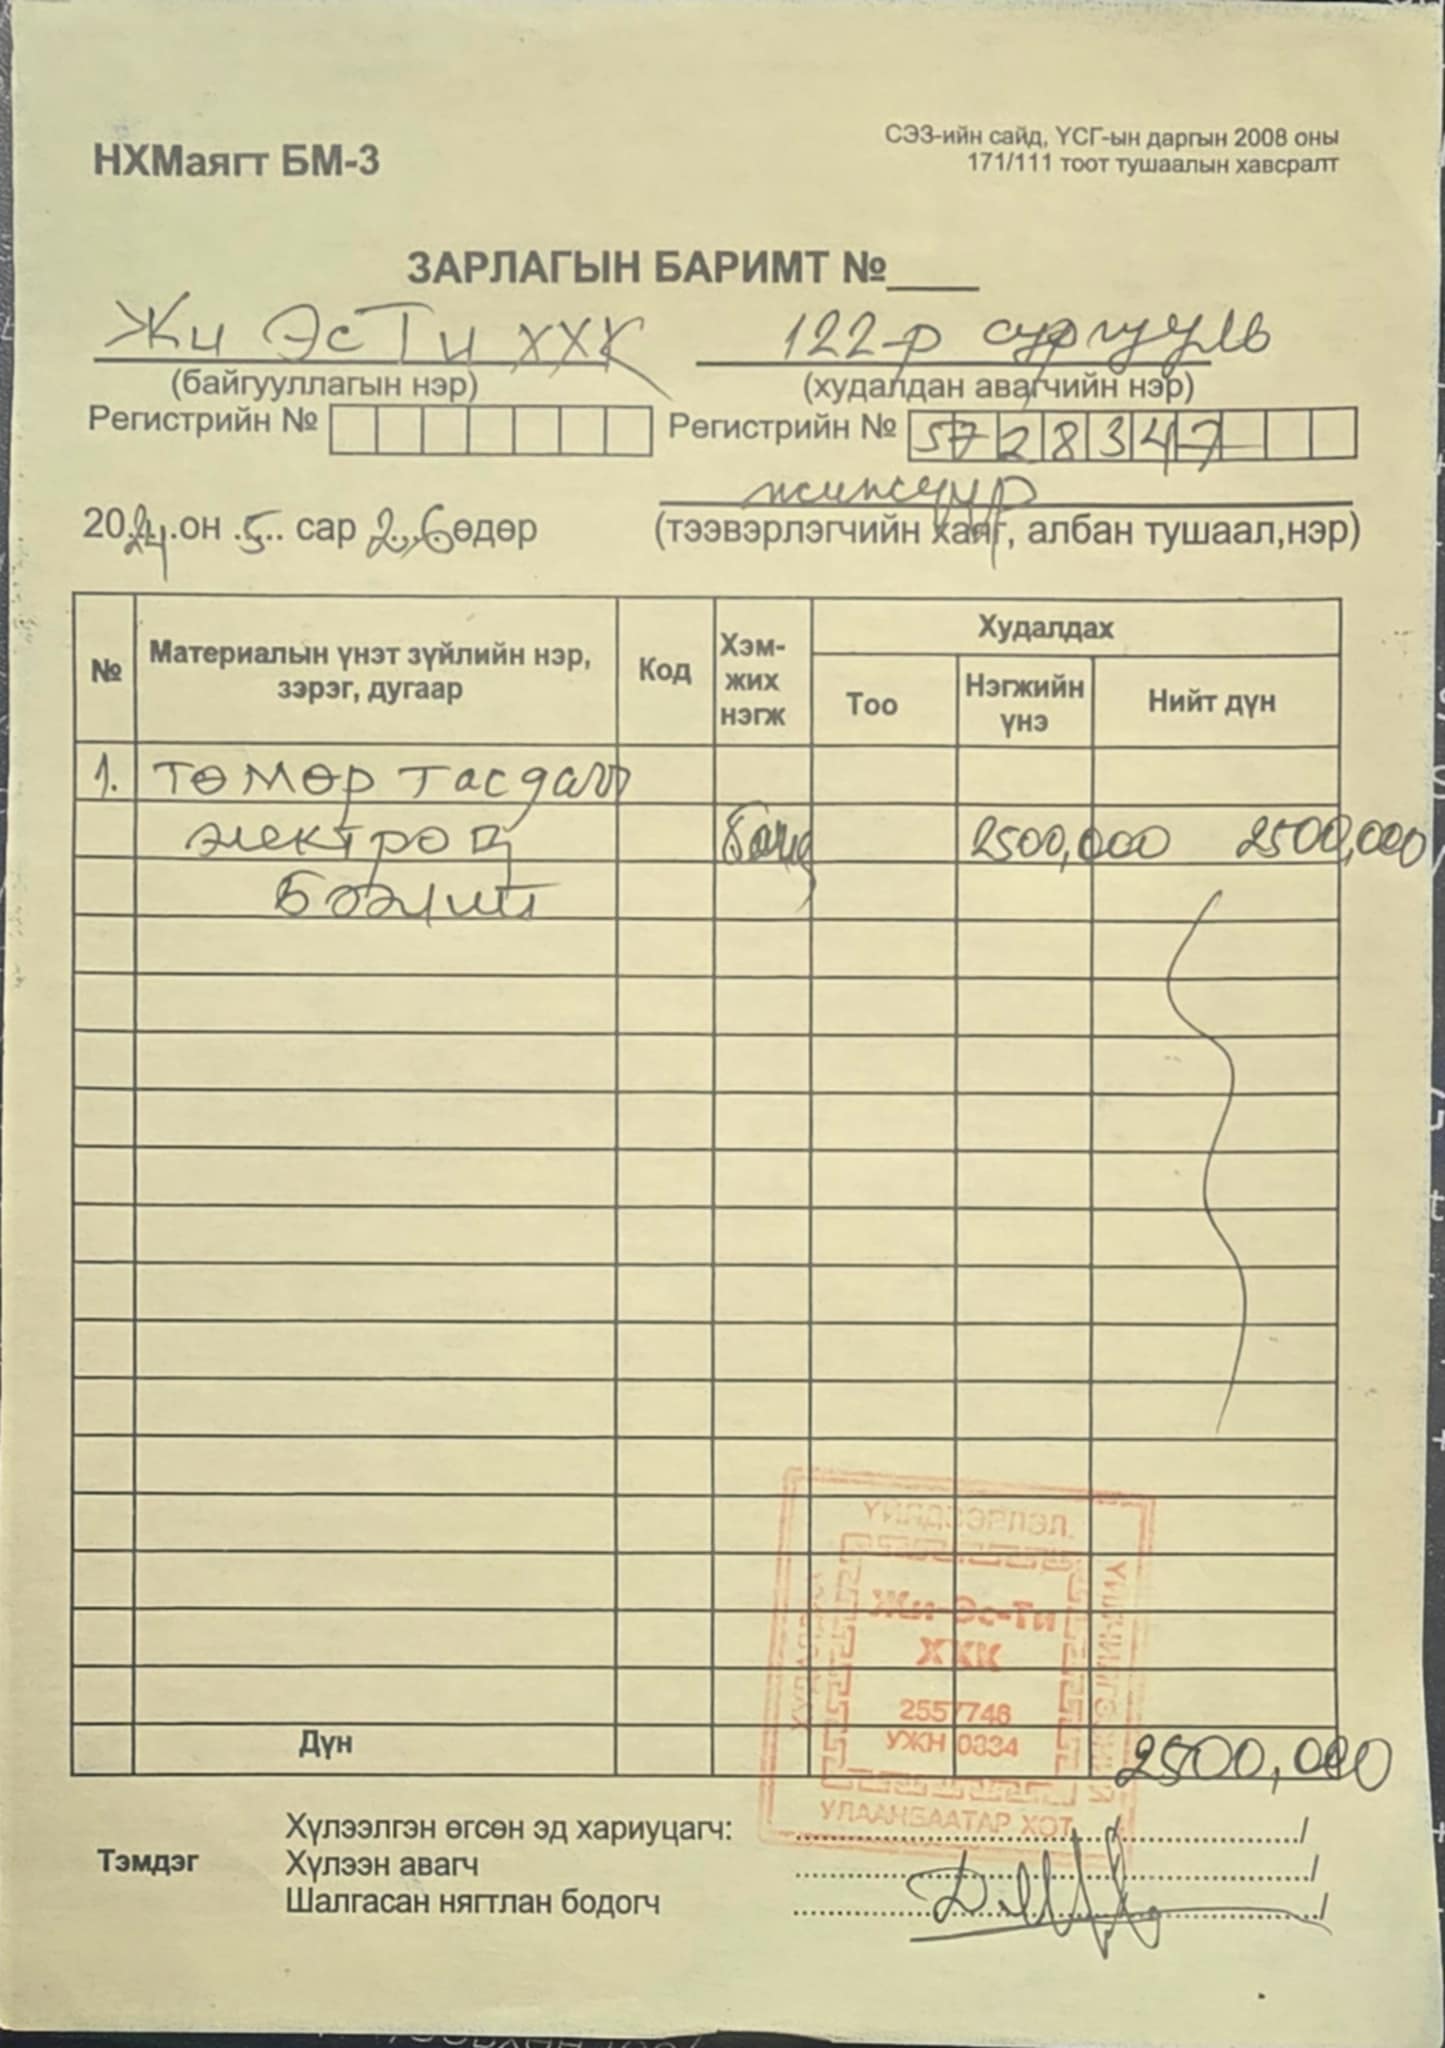 НХМаягт БМ-3
СЭЗ-ийн сайд, ҮСГ-ын даргын 2008 оны
171/111 тоот тушаалын хавсралт
ЗАРЛАГЫН БАРИМТ №____
Жи Эс Ти ХХК
122-р сургууль
(байгууллагын нэр)
(худалдан авагчийн нэр)
Регистрийн №
Регистрийн № 5728347
жижүүр
2024 он 5 сар 26 өдөр
(тээвэрлэгчийн хаяг, албан тушаал,нэр)
№
Материалын үнэт зүйлийн нэр, зэрэг, дугаар
Код
Хэм-жих нэгж
Худалдах
Тоо
Нэгжийн үнэ
Нийт дүн
1. төмөр тасдагч
электрод 2500,000 2500,000
бээлий
Дүн 2500,000
ҮЙЛДВЭРЛЭЛ,
ХУДАЛДАА
ҮЙЛЧИЛГЭЭНИЙ
Жи-Эс-Ти
ХХК
2557746
УЖН 0334
УЛААНБААТАР ХОТ
Тэмдэг
Хүлээлгэн өгсөн эд хариуцагч: ............/
Хүлээн авагч ............/
Шалгасан нягтлан бодогч ............/